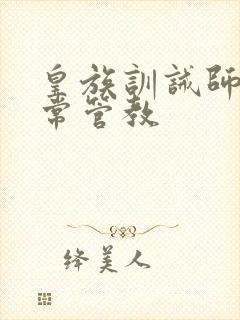 皇族訓誡師
常管教
绛美人